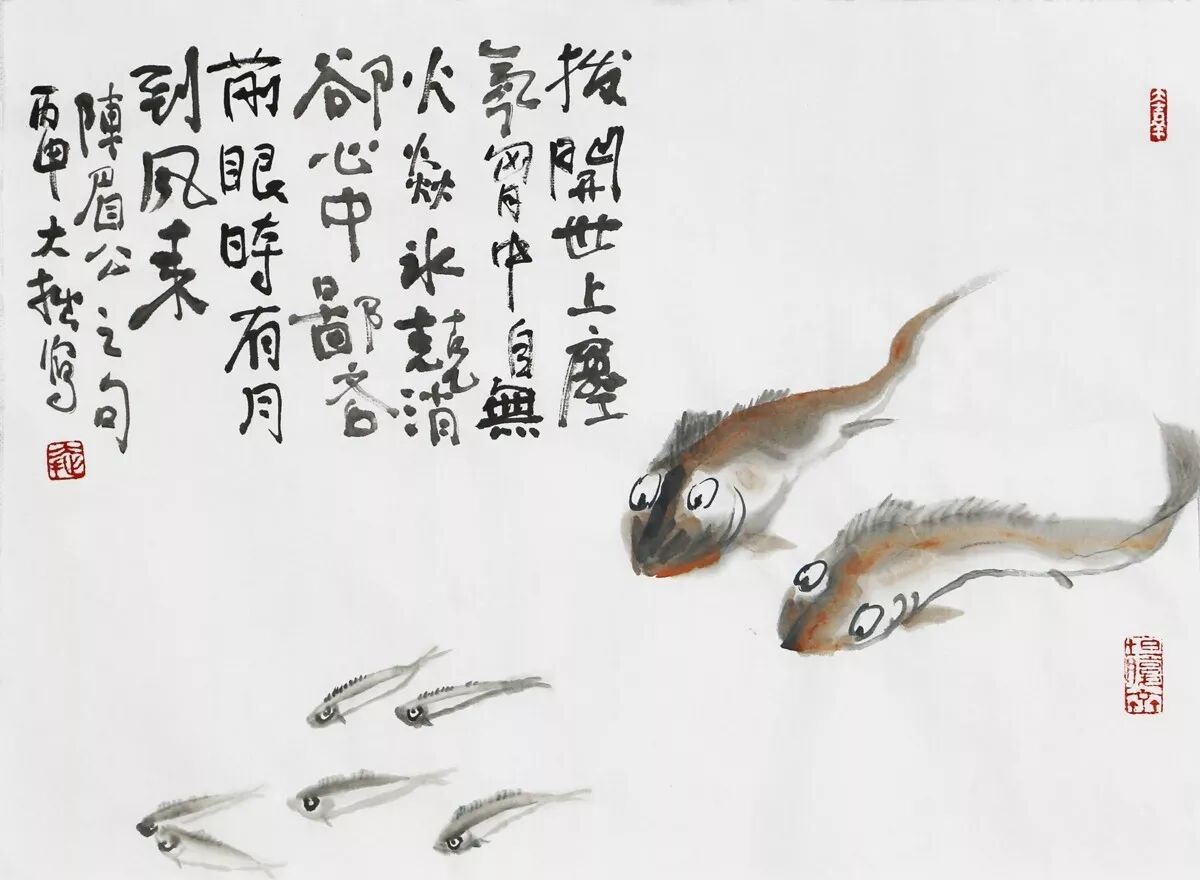 撥開世上塵
氛胷中自無
火焱冰兢消
卻心中鄙吝
前眼時有月
到風来
陳眉公之句
丙申大拙寫